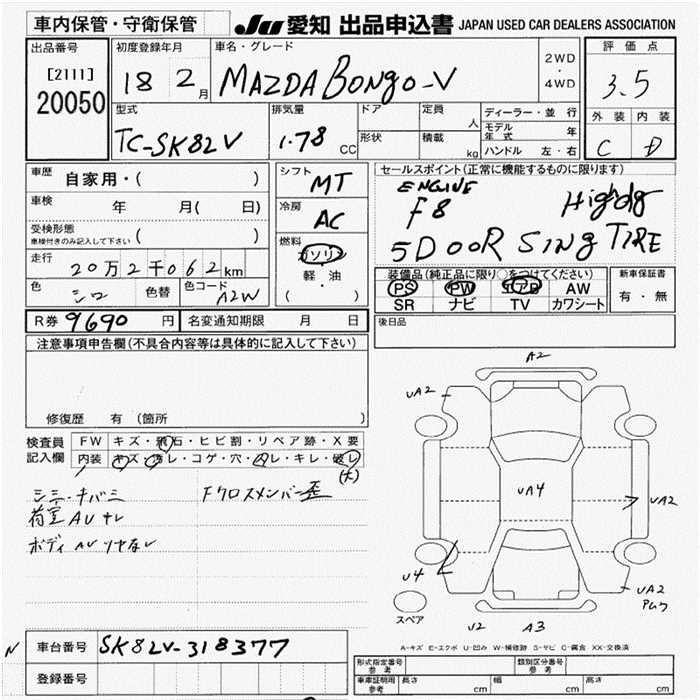 車内保管・守衛保管
JU 愛知 出品申込書 JAPAN USED CAR DEALERS ASSOCIATION
出品番号
[2111]
20050
初度登録年月
18 2月
車名・グレード
MAZDA BONGO-V
2WD
・
4WD
評価点
3.5
外装 内装
C D
型式
TC-SK82V
排気量
1.78 CC
ドア
定員
人
形状
積載
kg
ディーラー・並行
モデル年式 年
ハンドル 左・右
車歴 自家用・( )
車検 年 月( 日)
受検形態
車検付きのみ記入して下さい ( )
走行 20万2千062km
色 シロ 色替 色コード A2W
シフト MT
冷房 AC
燃料
ガソリン
軽・油
( )
セールスポイント(正常に機能するものに限ります)
ENGINE
F8
5DOOR SING TIRE
装備品(純正品に限り○をつけてください)
PS PW エアB AW
SR ナビ TV カワシート
新車保証書
有・無
R券 9690円
名変通知期限 月 日
後日品
注意事項申告欄(不具合内容等は具体的に記入して下さい)
修復歴 有(箇所
検査員
記入欄
FW キズ・飛石・ヒビ割・リペア跡・X要
内装 キズ・汚レ・コゲ・穴・スレ・キレ・破レ
(大)
荷室AUナレ
Fクロスメンバー歪
A2
UA2
UA4
UA2
U4
UA2
U2
A3
スペア
A-キズ E-エクボ U-凹み W-補修跡 S-サビ C-腐食 XX-交換済
N
車台番号 SK82V-318377
登録番号
形式指定番号
参考
類別区分番号
参考
車庫証明用
参考
長さ cm 幅 cm 高さ cm